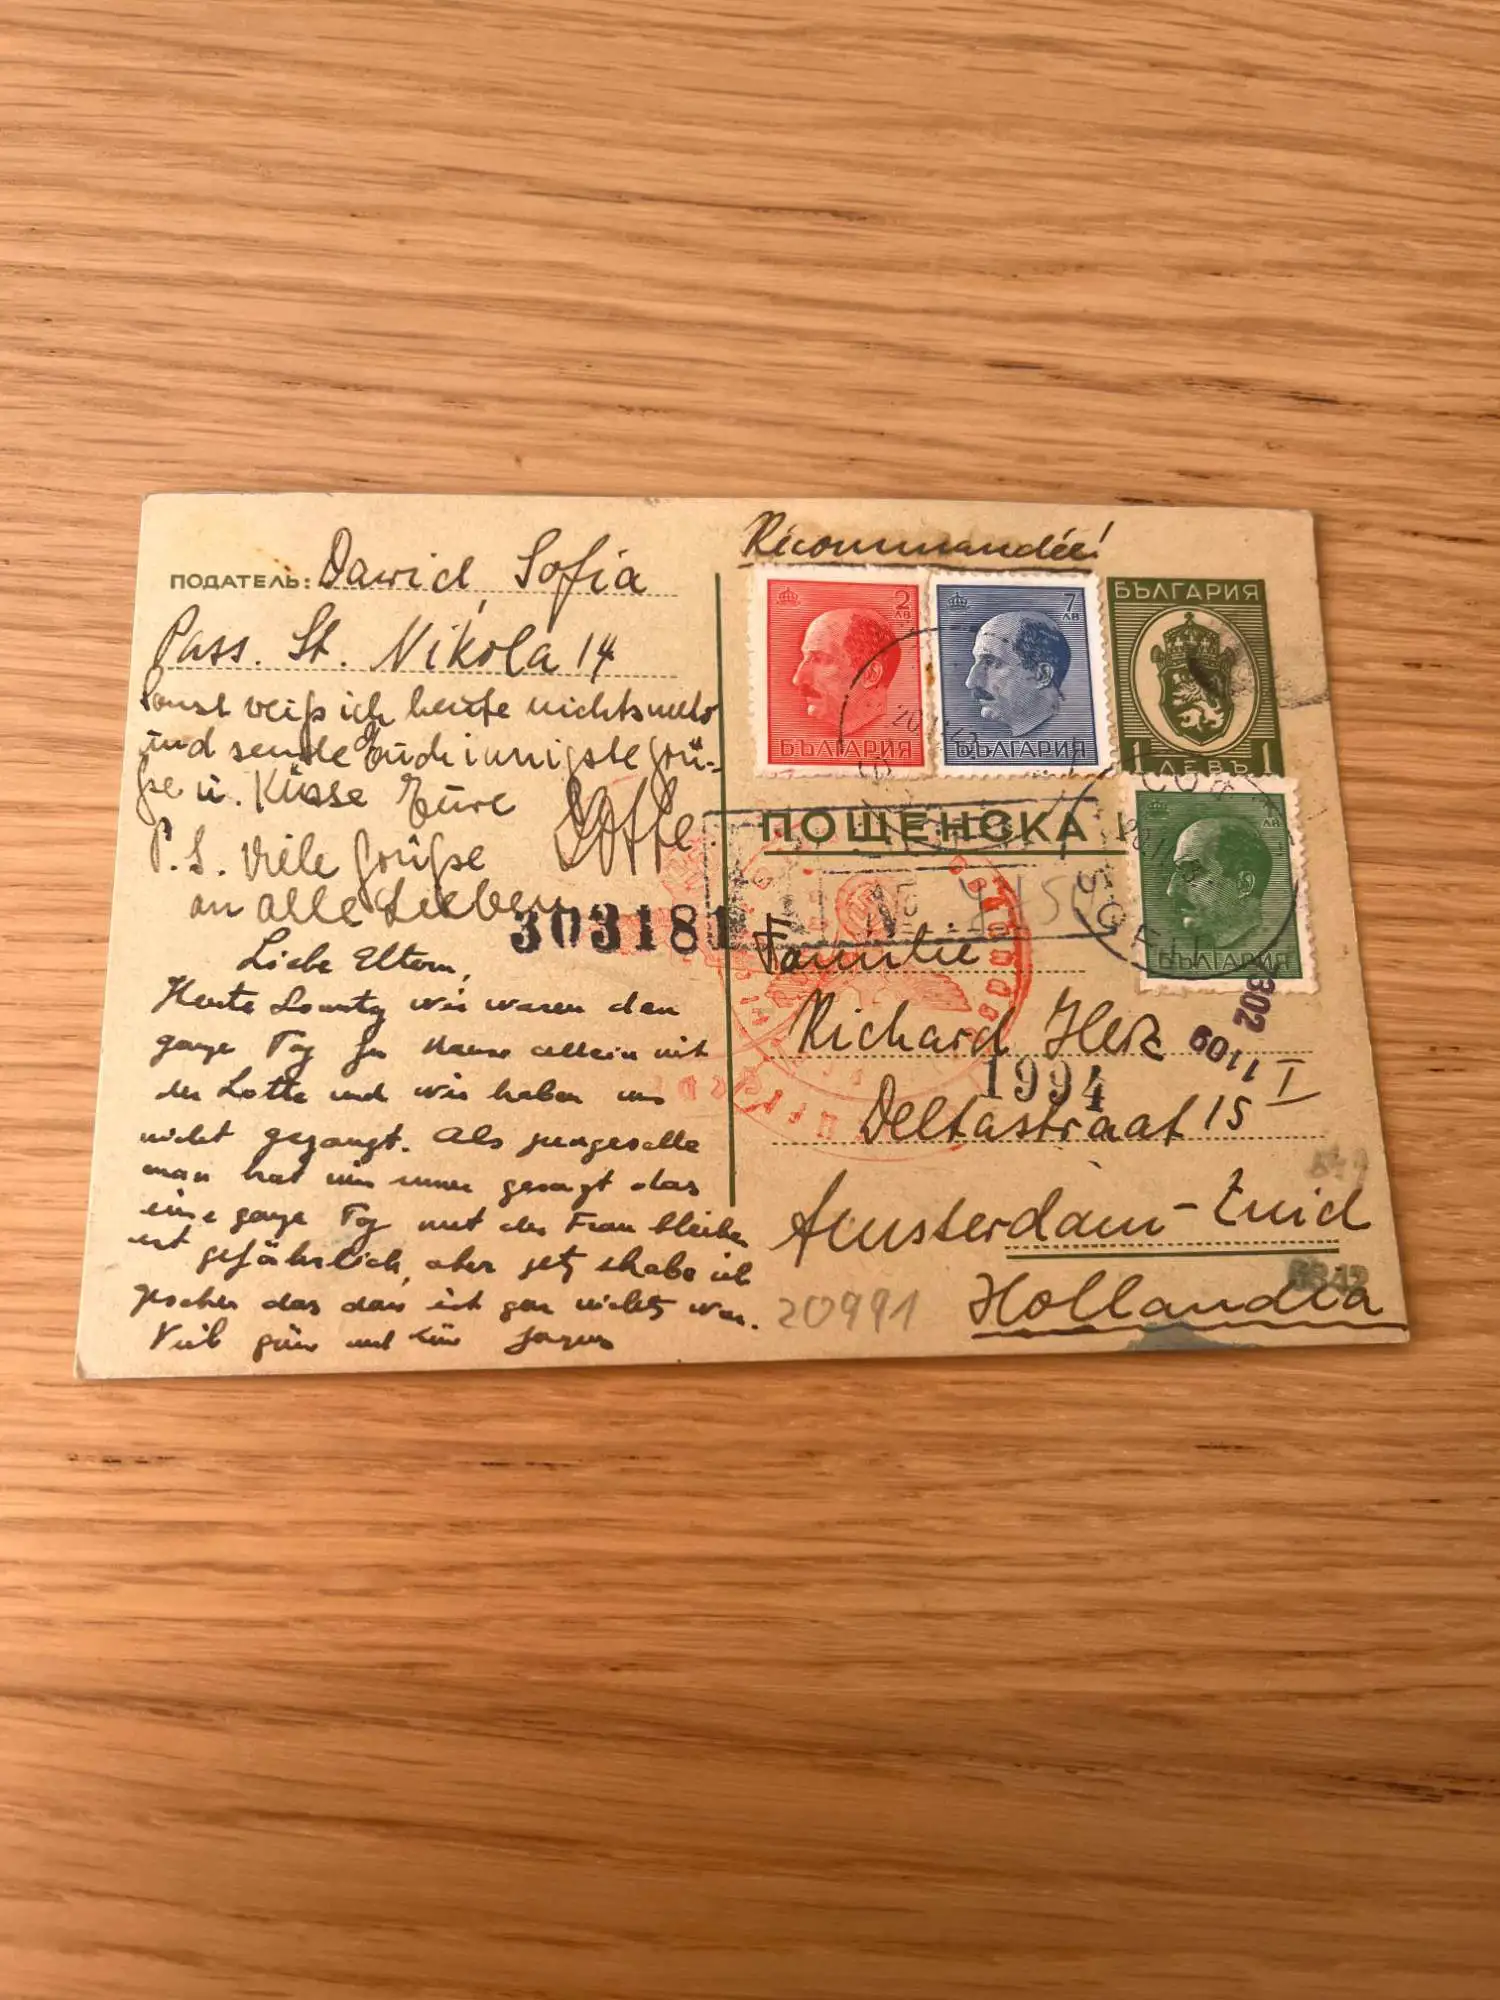 Recommandée!
ПОДАТЕЛЬ: David, Sofia
Pass. St. Nikola 14
Sonst weiß ich heute nichts mehr
und sende Euch innigste Grü-
ße u. Küsse Eure
Lotte
P.S. Viele Grüße
an alle Lieben
303181
Liebe Eltern,
Heute Sonntag wir waren den
ganze Tag zu Hause allein mit
der Lotte und wir haben uns
nicht gezangt. Als jungeselle
man hat mir immer gesagt das
eine ganze Tag mit der Frau bleiben
ist gefährlich, aber jetz habe ich
gesehen das das ist gar nichts war.
Viele und
2 ЛВ
БЪЛГАРИЯ
7 ЛВ
БЪЛГАРИЯ
БЪЛГАРИЯ
1 ЛЕВЪ 1
ПОЩЕНСКА
ЛВ
БЪЛГАРИЯ
Familie
Richard Herz
1994
Deltastraat 15 I
Amsterdam-Zuid
Hollandia
302
1109
20991
6842